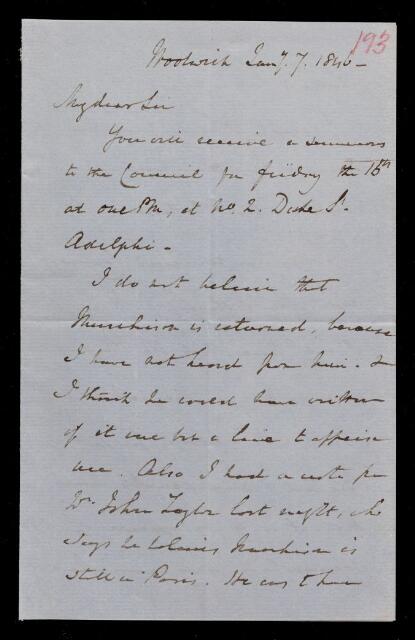 193
Woolwich Jany. 7. 1846 –
My dear Sir
You will receive a summons
to the Council for friday the 16th
at one PM, at No. 2. Duke St.
Adelphi –
I do not believe that
Murchison is returned, because
I have not heard from him – &
I think he would have written
if it were but a line to apprise
me. Also I had a note from
Mr. John Taylor last night, who
says he believes Murchison is
still in Paris. He was there